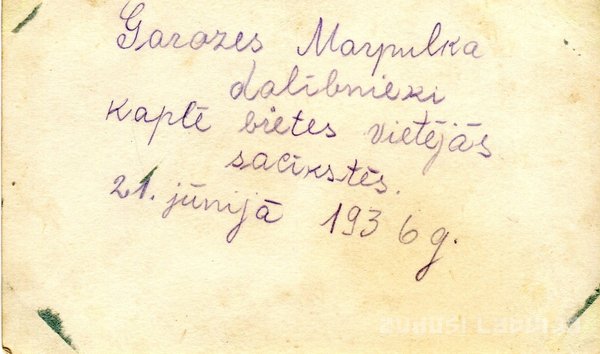 Garozes Marpulka
dalībnieki
kaplē bietes vietējās
sacīkstēs.
21. jūnijā 1936 g.